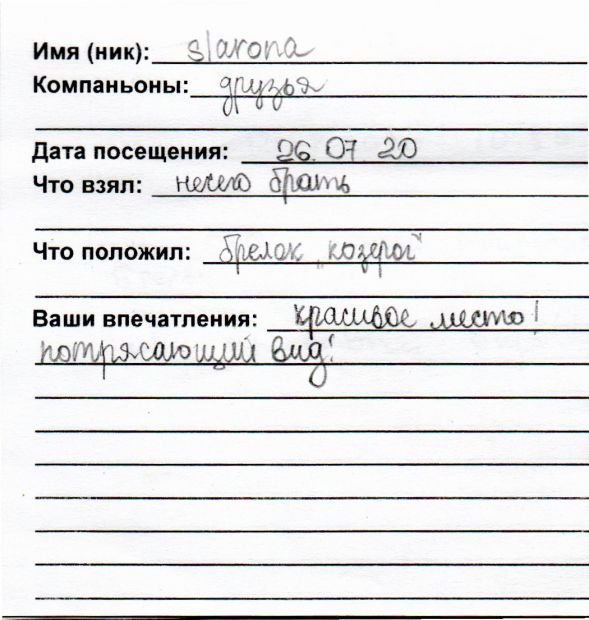 Имя (ник): slarona
Компаньоны: друзья
Дата посещения: 26.07.20
Что взял: нечего брать
Что положил: брелок „козерог"
Ваши впечатления: красивое место!
потрясающий вид!